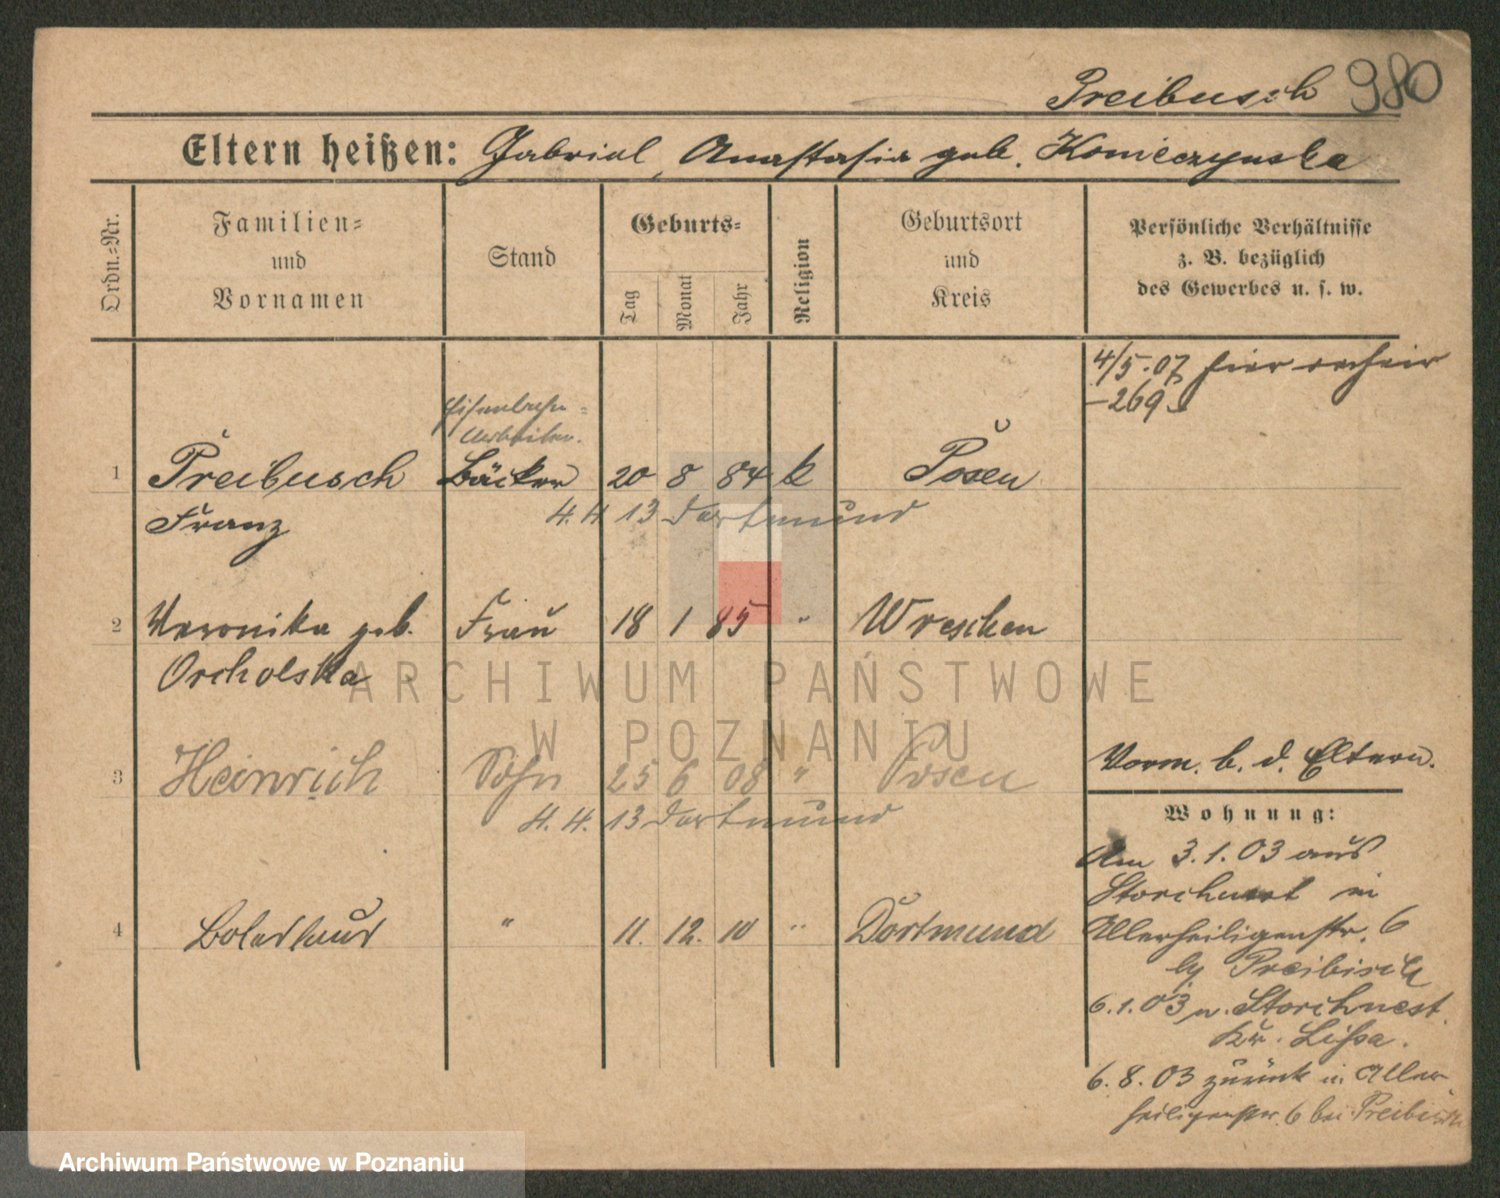 Preibusch 980
Eltern heißen: Gabriel, Anastasia geb. Konieczynska
Ordn.=Nr.
Familien=
und
Vornamen
Stand
Geburts=
Tag
Monat
Jahr
Religion
Geburtsort
und
Kreis
Persönliche Verhältnisse
z. B. bezüglich
des Gewerbes u. s. w.
4/5.07 hier
-269-
Eisenbahn-
Arbeiter.
1 Preibusch Bäcker 20 8 84 k Posen
Franz 4.4 13 Dortmund
2 Veronika geb. Frau 18 1 85 " Wreschen
Orcholska
3 Heinrich Sohn 25 6 08 " Posen
4. 4. 13 Dortmund
Vorm. b. d. Eltern.
Wohnung:
Am 3.1.03 aus
Storchnest in
Allerheiligenstr. 6
Preibisch
4 " 11. 12. 10 " Dortmund
6.1.03 n. Storchnest
Kr. Lissa.
6.8.03 zurück in Aller
heiligenstr. 6 bei Preibisch
ARCHIWUM PAŃSTWOWE
W POZNANIU
Archiwum Państwowe w Poznaniu